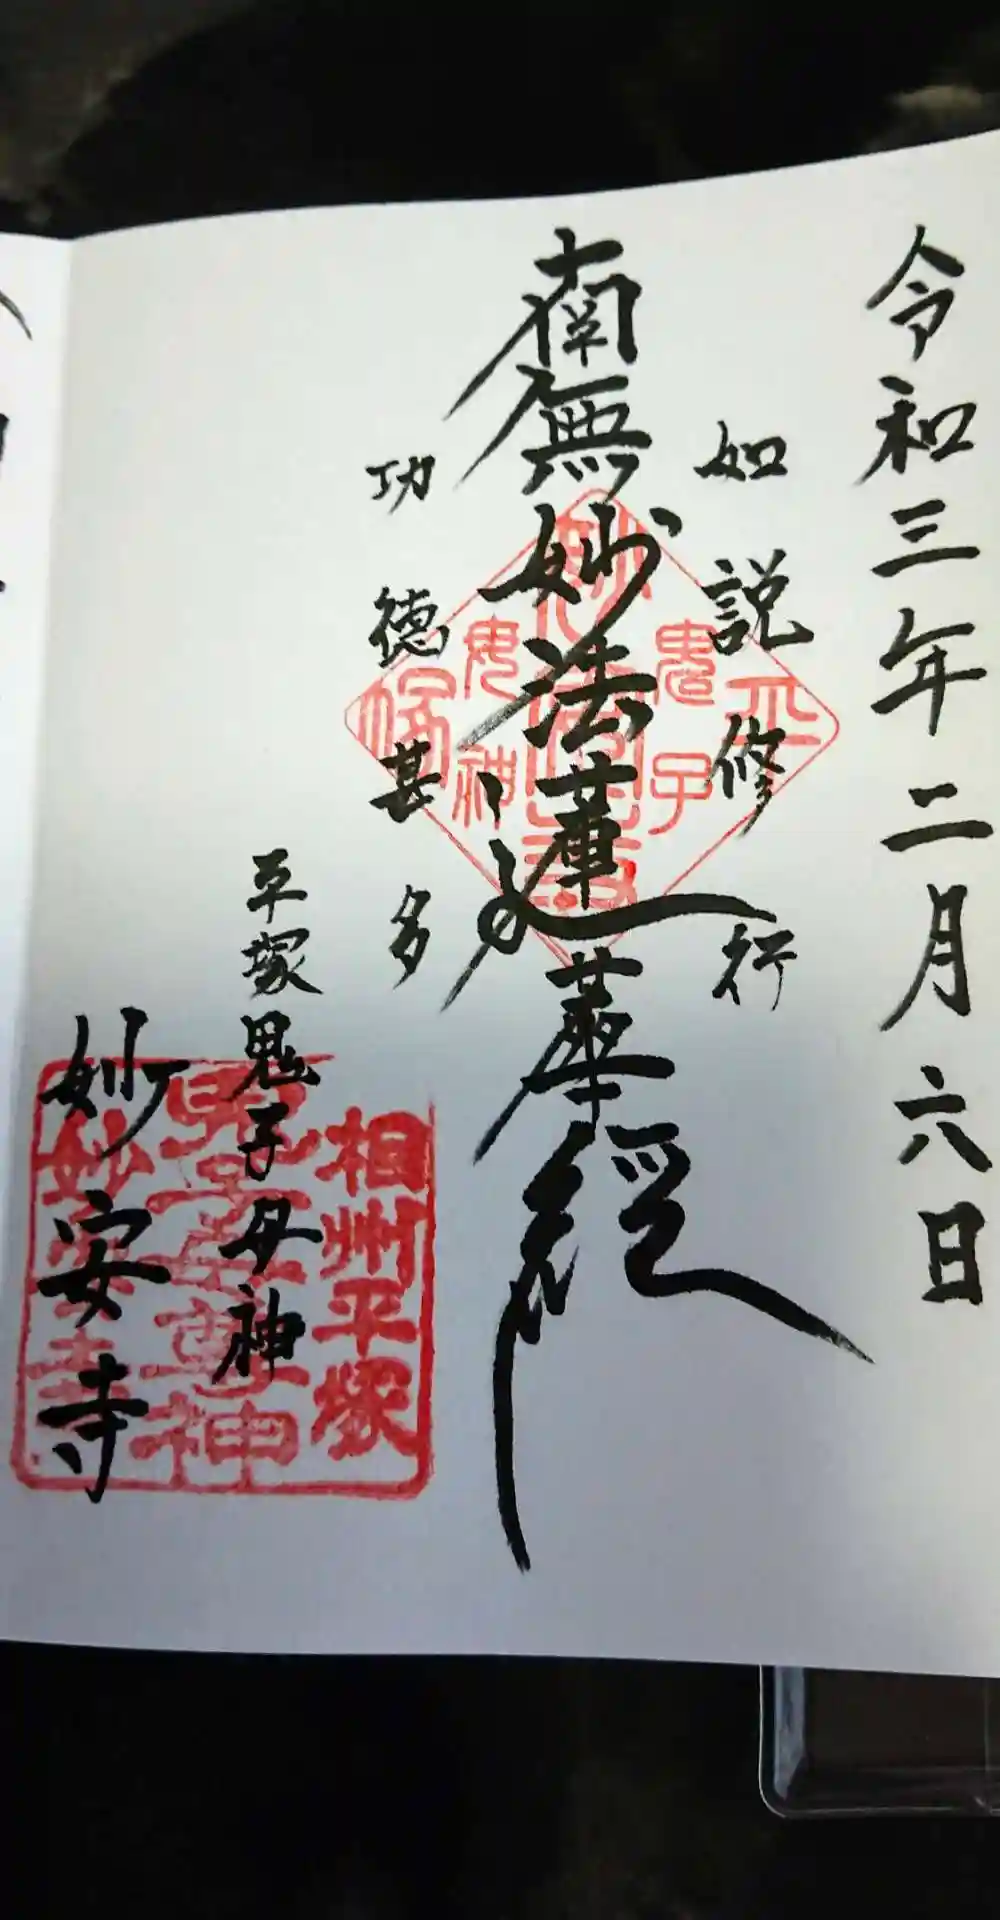 令和三年二月六日
如説修行
南無妙法蓮華経
功徳甚多
平塚鬼子母神
妙安寺
鬼子
母神
相州平塚
妙安寺